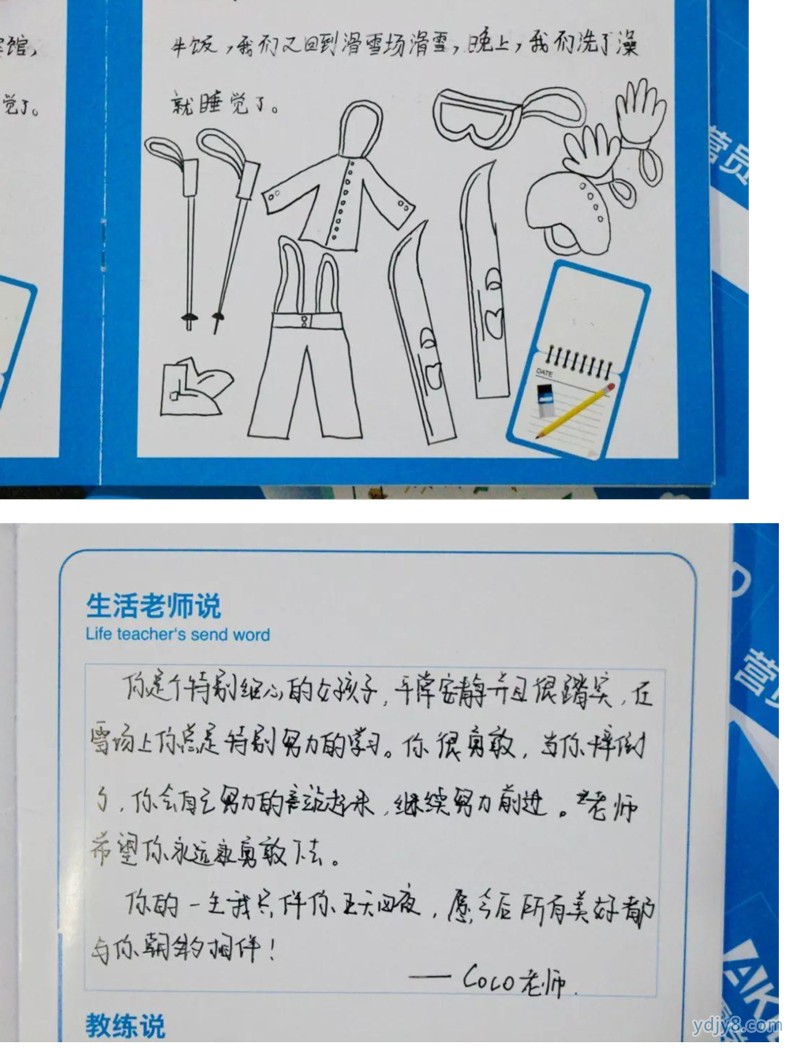 宾馆，
觉了。
午饭，我们又回到滑雪场滑雪，晚上，我们洗了澡
就睡觉了。
营员
DATE
生活老师说
Life teacher's send word
你是个特别细心的女孩子，平常安静并且很踏实，在
雪场上你总是特别努力的学习。你很勇敢，当你摔倒
了，你会自己努力的站起来，继续努力前进。老师
希望你永远勇敢下去。
你的一生我只伴你五天四夜，愿今后所有美好都
与你朝夕相伴！
——CoCo老师.
教练说
营员
AK
ydjy8.com